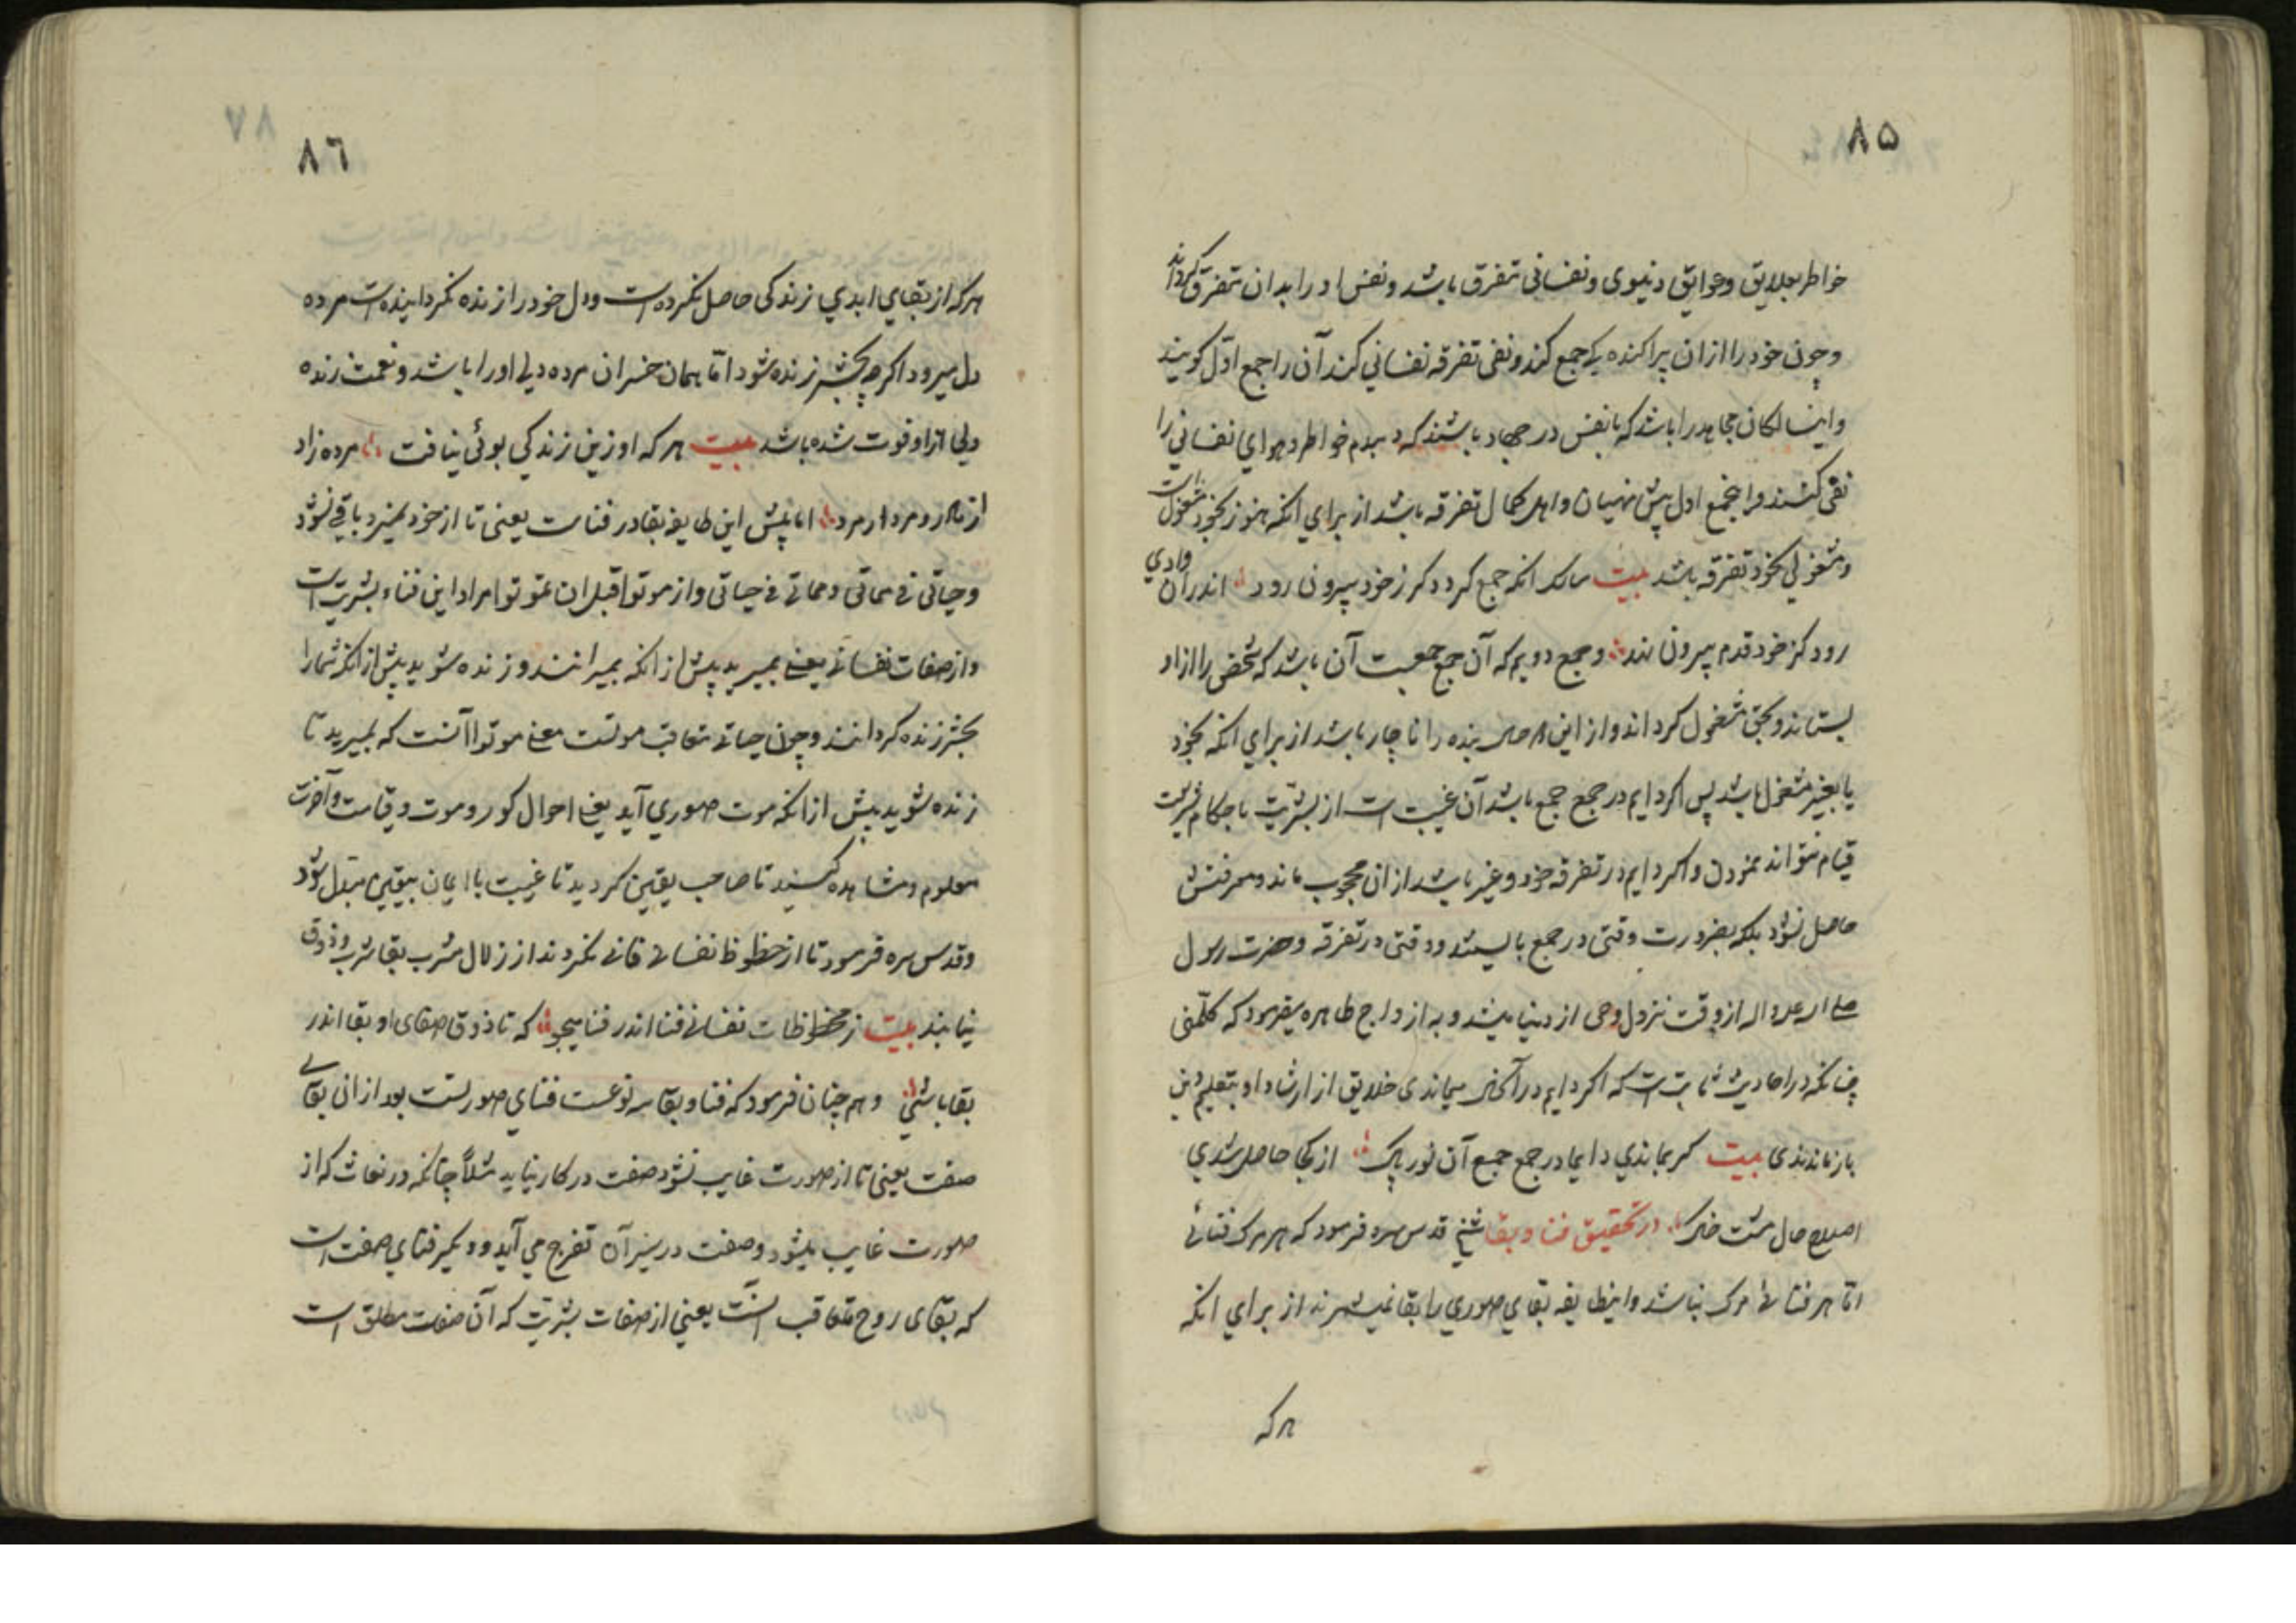 ۸۵
خاطر بعلایق و عوایق دنیوی و نفسانی متفرق باشد و نفس او را بدان متفرق کرداند
و چون خود را ازان پراکنده کی جمع کند و نفی تفرقه نفسانی کند آن را جمع اوّل کویند
و این سالکان مجاهد را باشد که با نفس در جهاد باشند که دمبدم خواطر و هوای نفسانی را
نفی کنند و این جمع اول پیش منتهیان و اهل کمال تفرقه باشد از برای انکه هنوز بخود مشغول است
و مشغولی بخود تفرقه باشد بیت سالک انکه جمع کردد کز خود بیرون رود اندران وادی
رود کز خود قدم بیرون نهد و جمع دویم که آن جمع جمعیت آن باشد که شخص را از او
بستاند و بحق مشغول کرداند و از این هر حال بنده را ناچار باشد از برای انکه بخود
یا بغیر مشغول باشد پس اکر دایم در جمع جمع باشد آن غیبت است از بشریّت باحکام شریعت
قیام نتواند نمودن و اکر دایم در تفرقه خود و غیر باشد ازان محجوب ماند و معرفتش
حاصل نشود بلکه بضرورت وقتی در جمع بایستد و وقتی در تفرقه و حضرت رسول
صلی اله علیه و اله از وقت نزول وحی از دنیا میشد و به ازواج طاهره میفرمود که کلّمنی
چنانکه در احادیث ثابت است که اکر دایم در آنحال میماندی خلایق از ارشاد او بتعلیم دین
بازماندندی بیت کر بماندی دایما در جمع جمع آن نور پاک از کجا حاصل شدی
اصلاح حال مشت خاک در تحقیق فنا و بقا شیخ قدس سره فرمود که هر مرک فنائے
امّا هر فنائے مرک نباشد و اینطایفه بقای صوری را بقا نمیشمرند از برای انکه
هرکه
۷۸
۸٦
هرکه از بقای ابدی زندکی حاصل نکرده است و دل خود را زنده نکردانیده است مرده
دل میرود اکرچه بحشر زنده شود امّا همان خسران مرده دلی اورا باشد و نعمت زنده
دلی ازو فوت شده باشد بیت هرکه او زین زندکی بوئی نیافت مرده زاد
از مادر و مردار مرد اما پیش این طایفه بقا در فناست یعنی تا از خود نمیرد باقی نشود
و حیاتی فی مماتی و مماتی فی حیاتی و از موتوا قبل ان تموتوا مراد این فناء بشریت است
و از صفات نفسانے یعنے بمیرید پیش از انکه بمیرانند و زنده شوید پیش از انکه شما را
بحشر زنده کردانند و چون حیاتے متعاقب موتست معنے موتوا آنست که بمیرید تا
زنده شوید پیش از انکه موت صوری آید یعنے احوال کور و موت و قیامت و آخرت
معلوم و مشاهده کنید تا صاحب یقین کردید تا غیبت با ایمان بیقین مبدل شود
و قدس سره فرمود تا از حظوظ نفسانے فانے نکردند از زلال مشرب بقا شرب و ذوق
نیابند بیت ز محظوظات نفسانے فنا اندر فنا میجو که تا ذوق صفای او بقا اندر
بقا باشی و هم چنان فرمود که فنا و بقا سه نوعست فنای صورتست بعد از ان بقای
صفت یعنی تا از صورت غایب نشود صفت در کار نیاید مثلاً چنانکه در نعاس که از
صورت غایب میشود و صفت در سیر آن تفرج می آید و دیکر فنای صفت است
که بقای روح متعاقب آنست یعنی از صفات بشریّت که آن صفت مطلق است